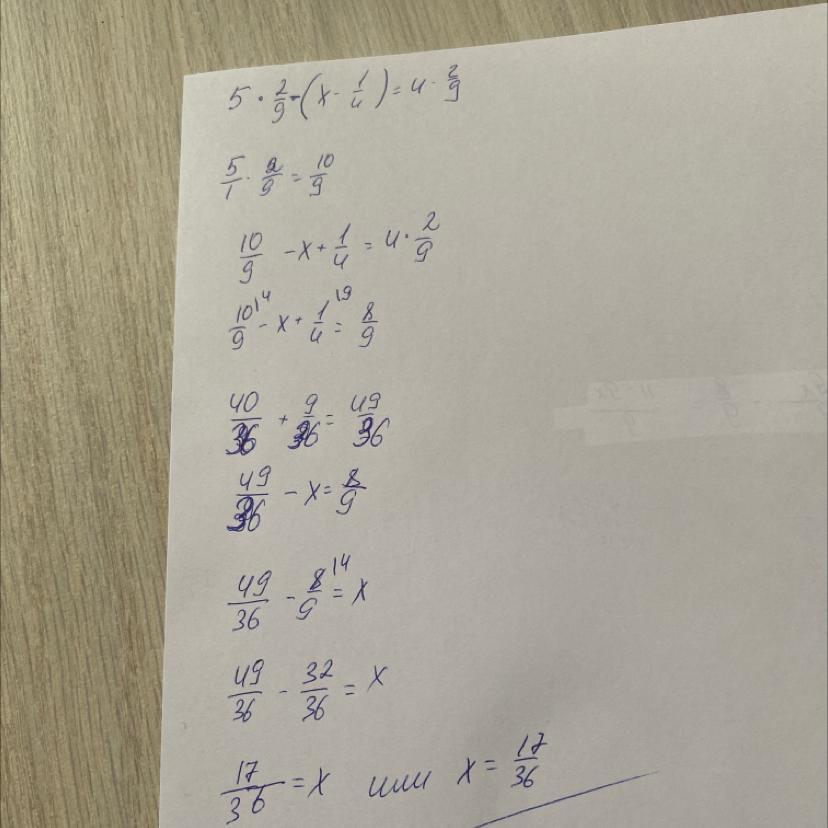 5 · 2/9 - (x - 1/4) = 4 · 2/9
5/1 · 2/9 = 10/9
10/9 - x + 1/4 = 4 · 2/9
10/9 |4 - x + 1/4 |9 = 8/9
40/36 + 9/36 = 49/36
49/36 - x = 8/9
49/36 - 8/9 |4 = x
49/36 - 32/36 = x
17/36 = x или x = 17/36